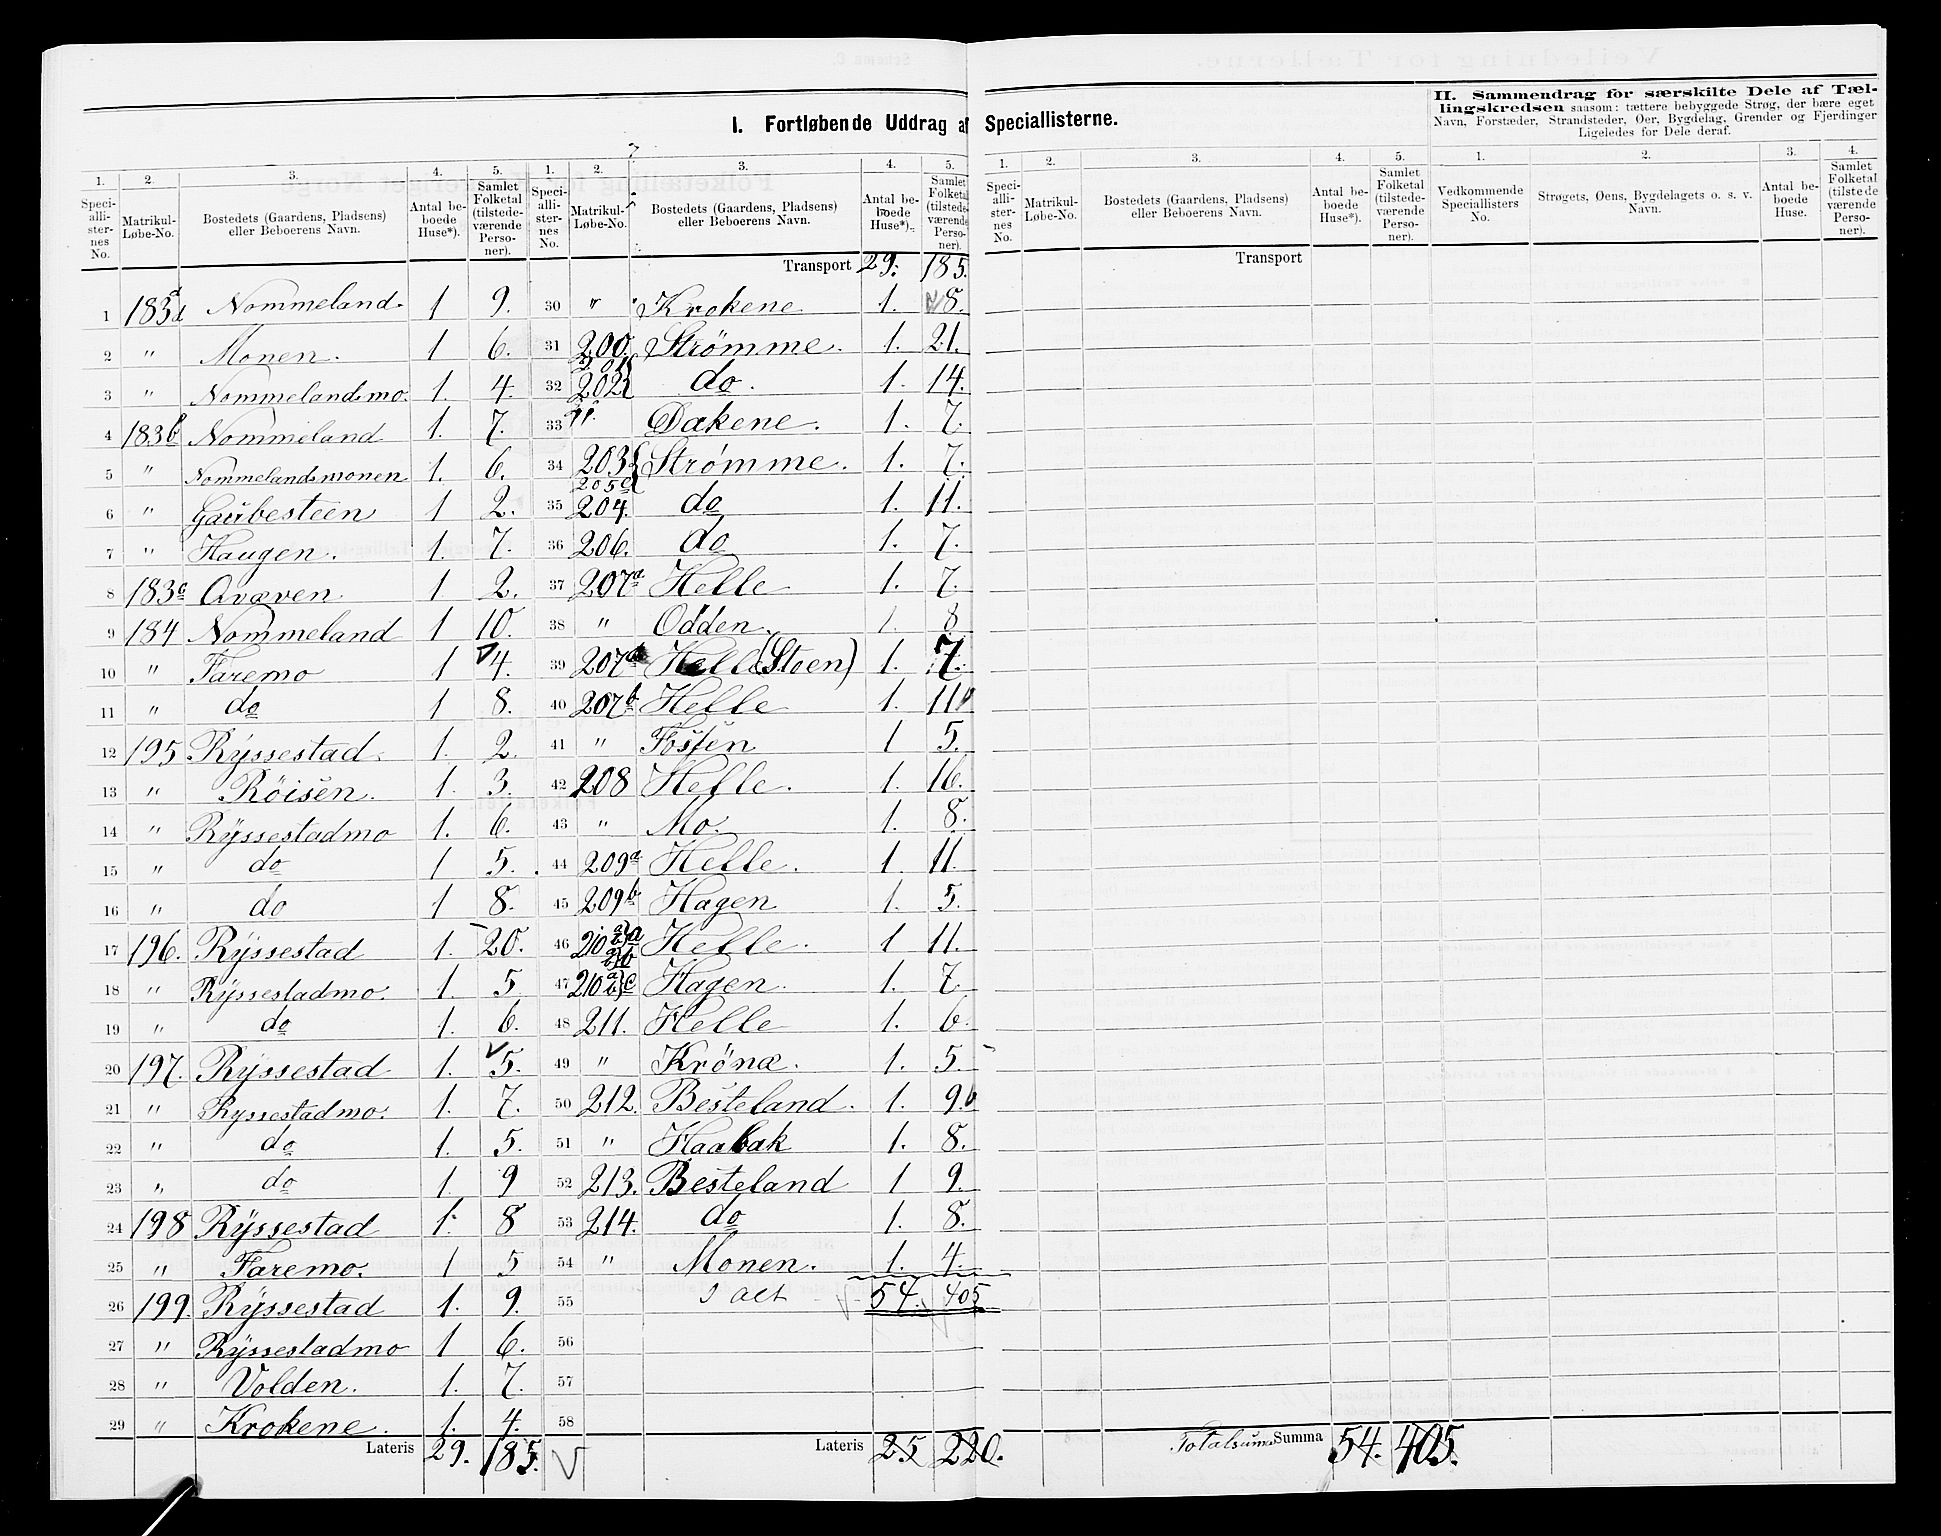 I. Fortløbende Uddrag af Speciallisterne.
II. Sammendrag for særskilte Dele af Tællingskredsen saasom: tættere bebyggede Strøg, der bære eget
Navn, Forstæder, Strandsteder, Øer, Bygdelag, Grender og Fjerdinger
Ligeledes for Dele deraf.
1. 2. 3. 4. 5. 1. 2. 3. 4. 5. 1. 2. 3. 4. 5. 1. 2. 3. 4.
Speciallisternes No. Matrikul-Løbe-No. Bostedets (Gaardens, Pladsens) eller Beboerens Navn. Antal beboede Huse*). Samlet Folketal (tilstedeværende Personer).
Speciallisternes No. Matrikul-Løbe-No. Bostedets (Gaardens, Pladsens) eller Beboerens Navn. Antal beboede Huse*). Samlet Folketal (tilstedeværende Personer).
Speciallisternes No. Matrikul-Løbe-No. Bostedets (Gaardens, Pladsens) eller Beboerens Navn. Antal beboede Huse*). Samlet Folketal (tilstedeværende Personer).
Vedkommende Speciallisters No. Strøgets, Øens, Bygdelagets o. s. v. Navn. Antal beboede Huse. Samlet Folketal (tilstedeværende Personer).
1 183 Nommeland. 1 9.
2 " Monen. 1 6.
3 " Nommelandsmo. 1. 4.
4 183b Nommeland 1. 7.
5 " Nommelandsmonen 1. 6.
6 " Gaubesteen 1 2.
7 " Haugen. 1. 7.
8 183c Qvæven 1 2.
9 184 Nommeland 1 10.
10 " Faremo 1 4.
11 " do 1 8.
12 195 Ryssestad. 1. 2.
13 " Röisen. 1. 3.
14 " Ryssestadmo 1. 6.
15 " do 1 5.
16 " do 1 8.
17 196. Ryssestad 1. 20.
18 " Ryssestadmo. 1. 5
19 " do 1. 6.
20 197. Ryssestad 1. 5.
21 " Ryssestadmo. 1. 7.
22 " do 1. 5.
23 " do 1. 9
24 198 Ryssestad 1. 8
25 " Faremo. 1 5
26 199. Ryssestad 1. 9.
27 " Ryssestadmo 1 6.
28 " Volden. 1. 7.
29 " Krokene. 1. 4.
Lateris 29. 185.
Transport 29. 185.
30 " Krokene 1. 8.
31 200. Strömme. 1. 21.
32 201 202 do. 1. 14.
33 ". Dakene. 1. 7.
34 203 205c Strømme. 1. 7.
35 204. do 1. 11.
36 206. do 1. 7.
37 207a Helle 1. 7.
38 " Odden. 1. 8
39 207 Helle (Stoen) 1. 7.
40 207b Helle 1. 11
41 " Fosten 1 5.
42 208 Helle. 1. 16.
43 " Mo. 1. 8.
44 209a Helle. 1. 11.
45 209b Hagen 1. 5.
46 210 Helle. 1 11.
47 210 Hagen. 1. 7.
48 211. Helle 1. 6.
49 " Krönæ. 1. 5.
50 212. Besteland. 1. 9.
51 " Haabak 1. 8.
52 213. Besteland 1 9.
53 214. do 1. 8.
54 " Monen. 1. 4.
55 I alt 54. 405
56
57
58
Lateris 25 220.
Transport
Totalsum Summa 54. 405.